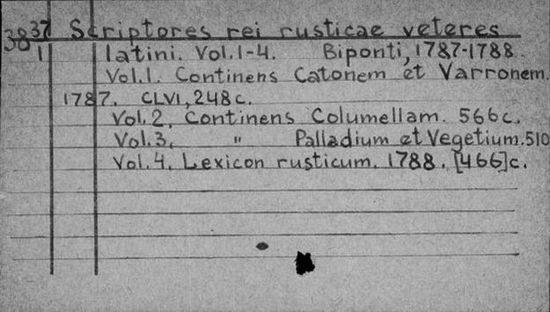 3837 Scriptores rei rusticae veteres
1 latini. Vol.1-4. Biponti, 1787-1788.
Vol.1. Continens Catonem et Varronem.
1787. CLVI, 248 c.
Vol.2. Continens Columellam. 566 c.
Vol.3. " Palladium et Vegetium. 510
Vol.4. Lexicon rusticum. 1788. [466] c.